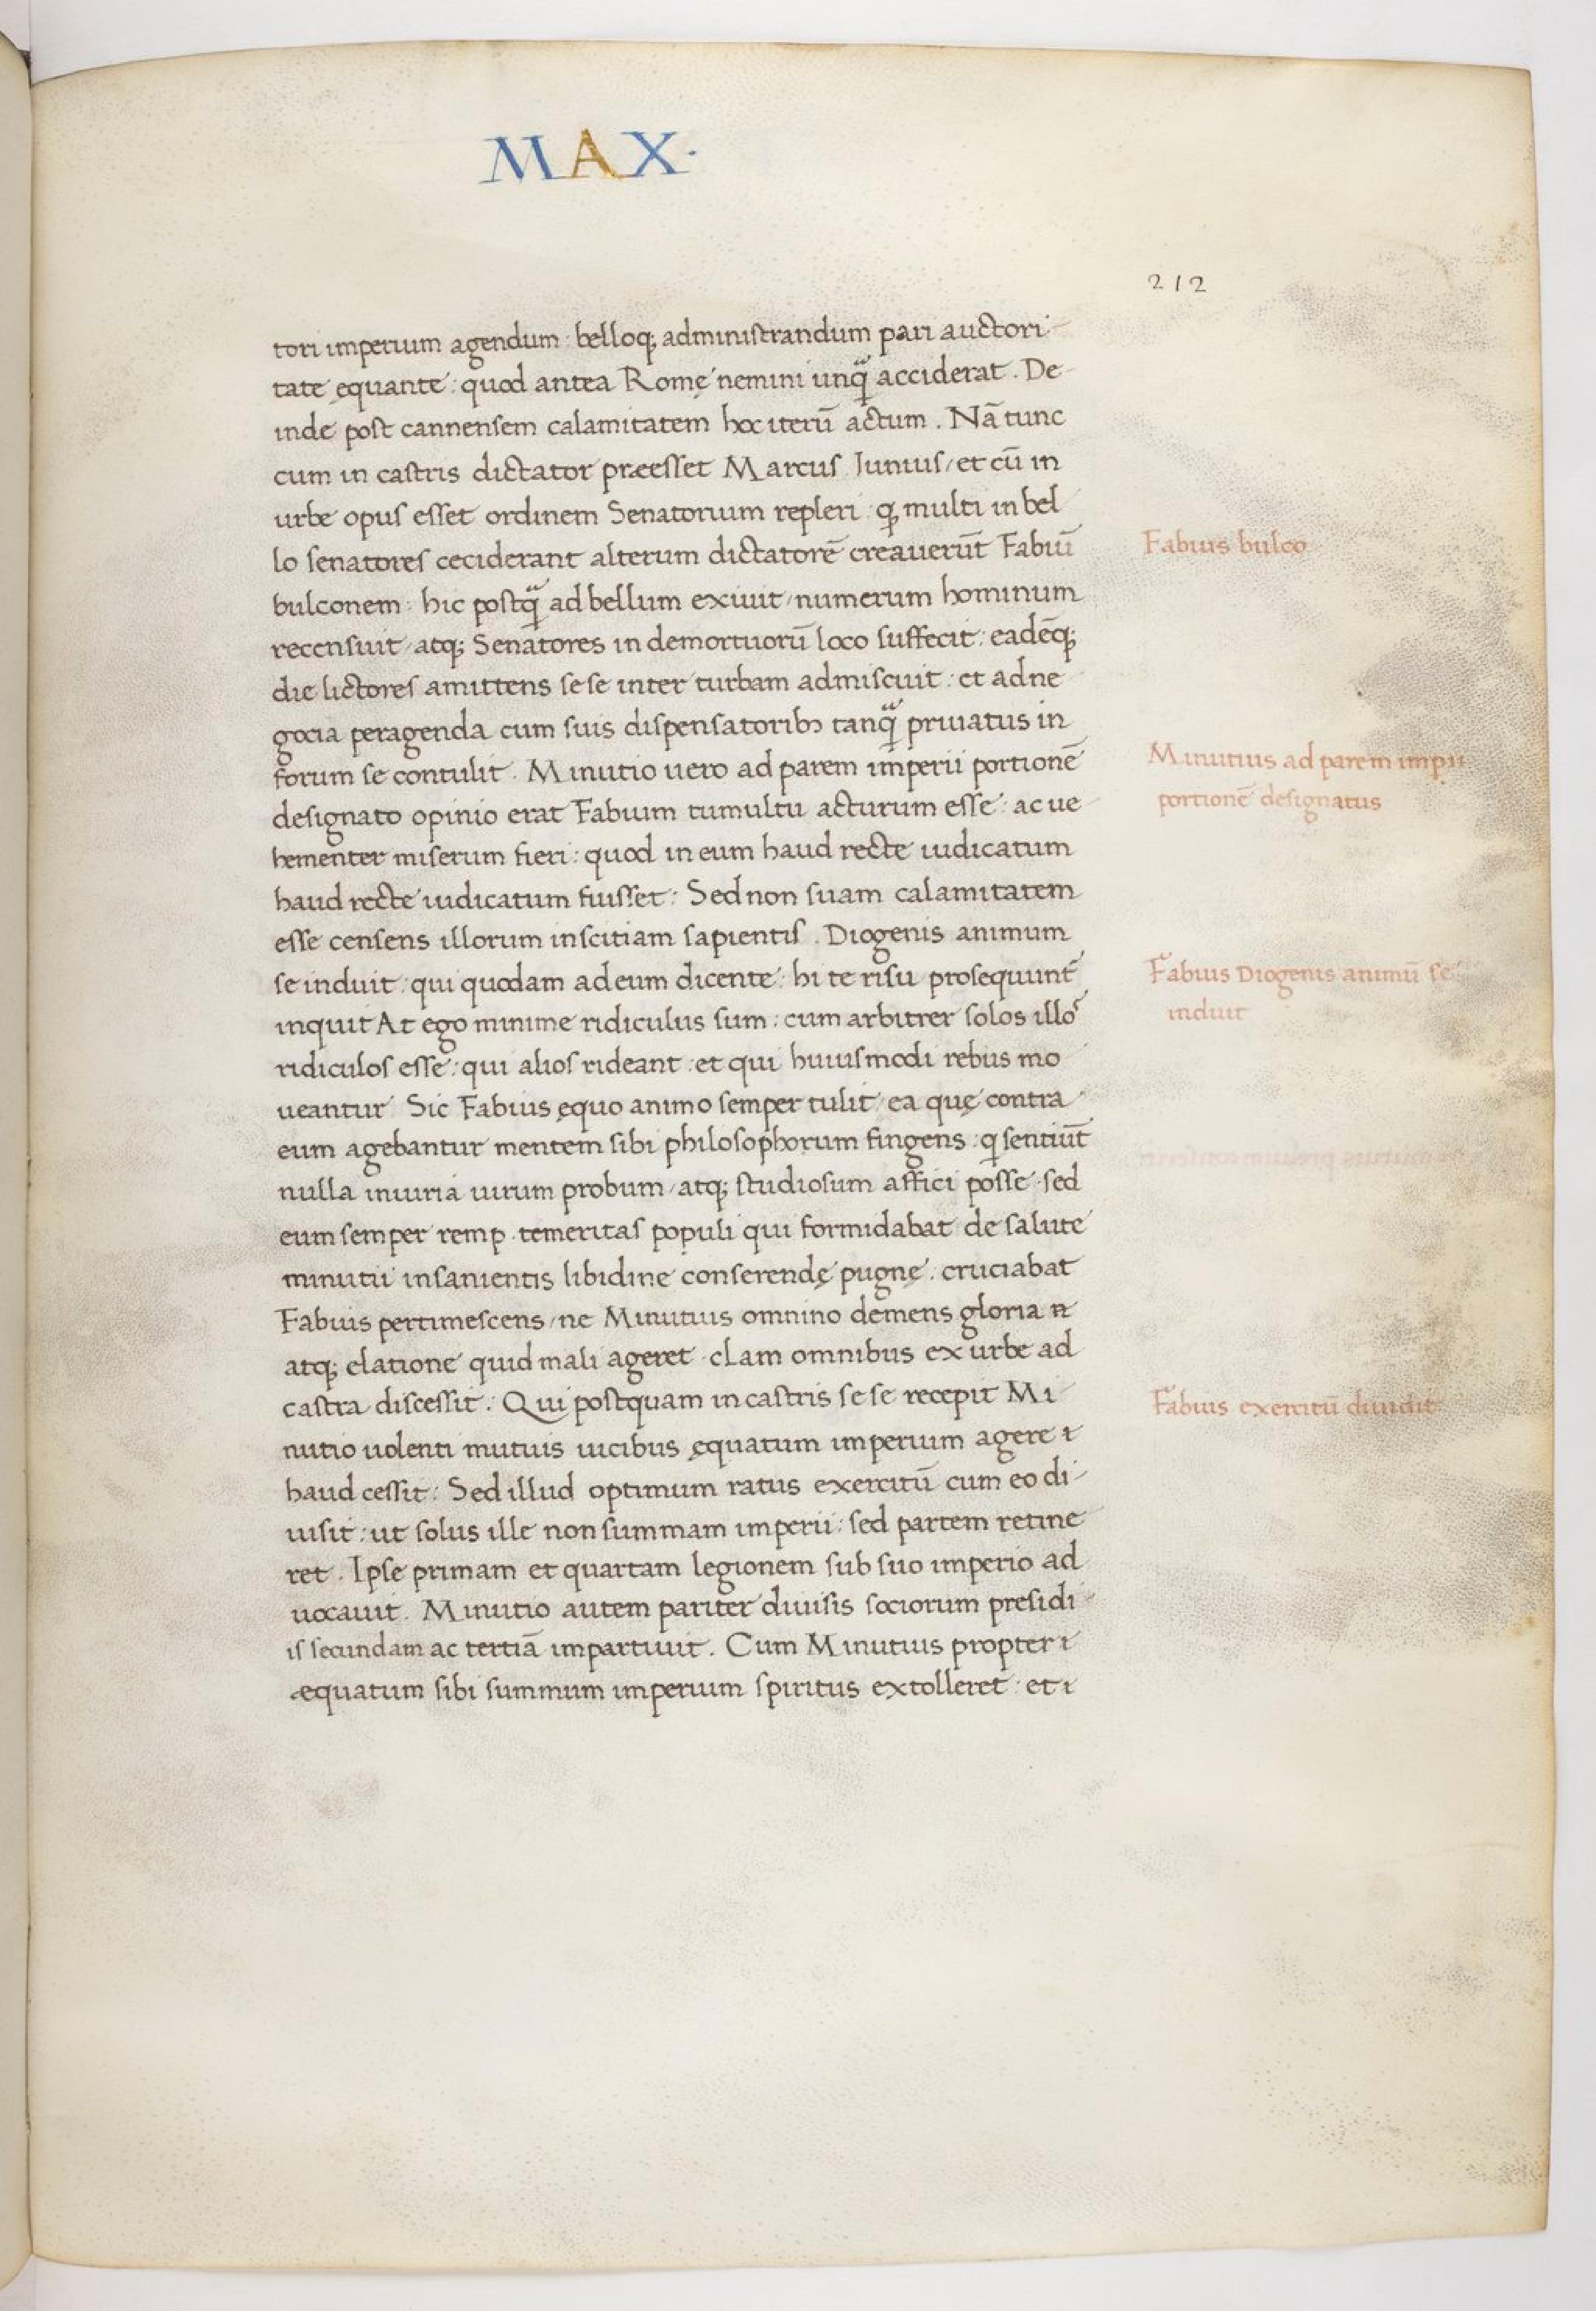 MAX·
212
tori imperium agendum : belloq; administrandum pari auctori
tate ęquante : quod antea Romę nemini unq̃ acciderat . De
inde post cannensem calamitatem hoc iterū actum . Nā tunc
cum in castris dictator præesset Marcus Iunius / et cū in
urbe opus esset ordinem Senatorium repleri : q; multi in bel
lo senatores ceciderant alterum dictatorē creauerūt Fabiū
Fabius bulco
bulconem : hic postq̃ ad bellum exiuit / numerum hominum
recensuit / atq; Senatores in demortuorū loco suffecit : eadēq;
die lictores amittens se se inter turbam admiscuit : et ad ne
gocia peragenda cum suis dispensatorib; tanq̃ priuatus in
forum se contulit . Minutio uero ad parem imperii portionē
Minutius ad parem impii
portionē designatus
designato opinio erat Fabium tumultu acturum esse : ac ue
hementer miserum fieri : quod in eum haud recte iudicatum
haud recte iudicatum fuisset : Sed non suam calamitatem
esse censens illorum inscitiam sapientis . Diogenis animum
se induit : qui quodam ad eum dicente : hi te risu prosequunt̃
Fabius Diogenis animū se
induit
inquit At ego minime ridiculus sum : cum arbitrer solos illoꝝ
ridiculos esse : qui alios rideant : et qui huiusmodi rebus mo
ueantur Sic Fabius ęquo animo semper tulit / ea quę contra
eum agebantur mentem sibi philosophorum fingens : q sentiūt
nulla iniuria uirum probum / atq; studiosum affici posse · sed
eum semper remp . temeritas populi qui formidabat de salute
minutii insanientis libidine conserendę pugnę . cruciabat
Fabius pertimescens / ne Minutius omnino demens gloria
atq; elatione quid mali ageret · clam omnibus ex urbe ad
castra discessit : Qui postquam in castris se se recepit Mi
Fabius exercitū diuidit
nutio uolenti mutuis uicibus ęquatum imperium agere
haud cessit : Sed illud optimum ratus exercitū cum eo di
uisit : ut solus ille non summam imperii : sed partem retine
ret . Ipse primam et quartam legionem sub suo imperio ad
uocauit . Minutio autem pariter diuisis sociorum presidi
is secundam ac tertiā impartiuit . Cum Minutius propter
æquatum sibi summum imperium spiritus extolleret : et